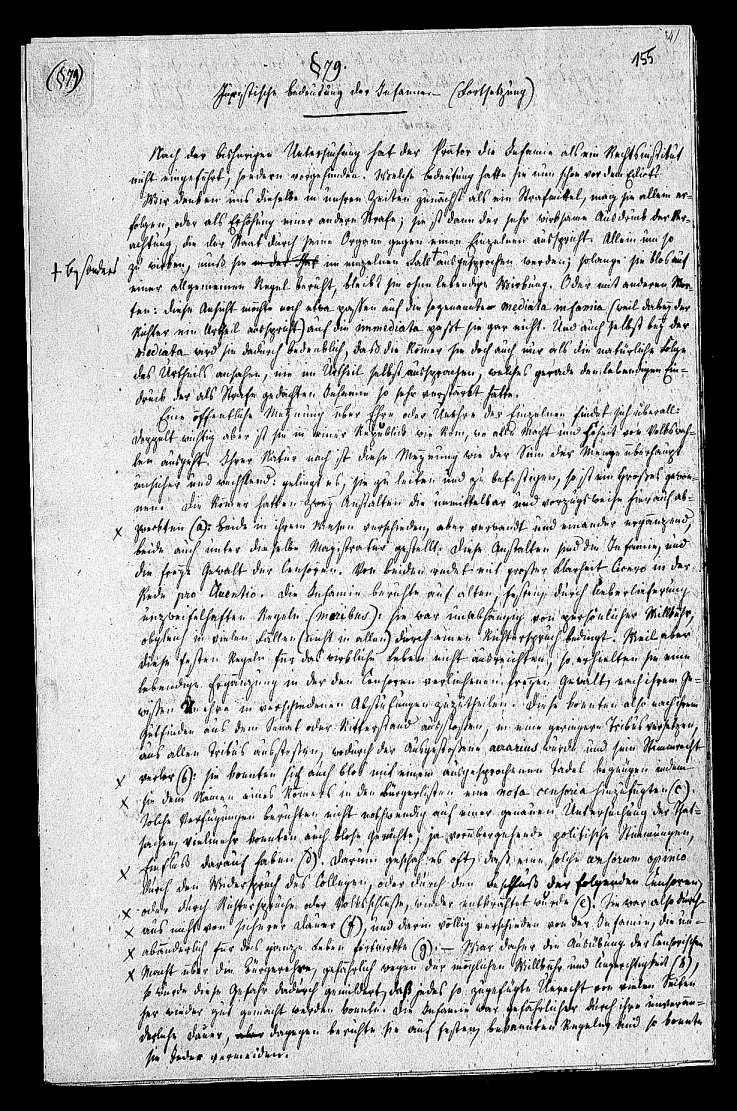 (§79)
§79.
155
Juristische Bedeutung der Infamie. (Fortsetzung)
Nach der bisherigen Untersuchung hat der Prätor die Infamie als ein Rechtsinstitut
nicht eingeführt, sondern vorgefunden. Welche Bedeutung hatte sie nun schon vor dem Edict?
Wir denken uns dieselbe in unsren Zeiten zunächst als ein Strafmittel, mag sie allein er-
folgen, oder als Erhöhung einer andern Strafe; sie ist dann der sehr wirksame Ausdruck der Ver-
achtung, die der Staat durch seine Organe gegen einen Einzelnen ausspricht. Allein um so
+ besonders
zu wirken, muß sie im einzelnen Fall + ausgesprochen werden; solange sie blos auf
einer allgemeinen Regel beruht, bleibt sie ohne lebendige Wirkung. Oder mit anderen Wor-
ten: diese Ansicht möchte noch etwa passen auf die sogenannte mediata infamia (weil dabey der
Richter ein Urtheil ausspricht) auf die immediata paßt sie gar nicht. Und auch selbst bey der
mediata wird sie dadurch bedenklich, daß die Römer sie doch auch nur als die natürliche Folge
des Urtheils ansahen, nie im Urtheil selbst aussprachen, welches gerade den lebendigen Ein-
druck der als Strafe gedachten Infamie so sehr verstärkt hätte.
Eine öffentliche Meynung über Ehre oder Unehre des Einzelnen findet sich überall:
doppelt wichtig aber ist sie in einer Republik wie Rom, wo alle Macht und Hoheit von Volkswah-
len ausgeht. Ihrer Natur nach ist diese Meynung wie der Sinn der Menge überhaupt
unsicher und wechselnd: gelingt es, sie zu leiten und zu befestigen, so ist ein Großes gewon-
nen. Die Römer hatten zwey Anstalten die unmittelbar und vorzugsweise hierauf ab-
x zweckten (a): beide in ihrem Wesen verschieden, aber verwandt und einander ergänzend,
beide auch unter dieselbe Magistratur gestellt. Diese Anstalten sind die Infamie, und
die freye Gewalt der Censoren. Von beiden redet mit großer Klarheit Cicero in der
Rede pro Cluentio. Die Infamie beruhte auf alten, festen, durch Ueberlieferung
unzweifelhaften Regeln (moribus): sie war unabhängig von persönlicher Willkühr,
obgleich in vielen Fällen (nicht in allen) durch einen Richterspruch bedingt. Weil aber
diese festen Regeln für das wirkliche Leben nicht ausreichten, so erhielten sie eine
lebendige Ergänzung in der den Censoren verliehenen freyen Gewalt, nach ihrem Ge-
wissen Ehre in verschiedenen Abstufungen zuzutheilen. Diese konnten also nach ihrem
Gutfinden aus dem Senat oder Ritterstand ausstoßen, in eine geringere Tribus versetzen,
aus allen Tribus ausstoßen, wodurch der Ausgestoßene aerarius wurde und sein Stimmrecht
x verlor (b): sie konnten sich auch blos mit einem ausgesprochenen Tadel begnügen indem
x sie dem Namen eines Römers in den Bürgerlisten eine nota censoria hinzufügten (c).
Solche Verfügungen beruhten nicht nothwendig auf einer genauen Untersuchung der That-
sachen, vielmehr konnten auch blose Gerüchte, ja vorübergehende politische Stimmungen,
x Einfluß darauf haben (d). Darum geschah es oft, daß eine solche censorum opinio
durch den Widerspruch des Collegen, oder durch den Beschluß der folgenden Censoren,
x oder durch Richtersprüche oder Volksschlüsse, wieder entkräftet wurde (e). Sie war also durch-
x aus nicht von sicherer Dauer (f), und darin völlig verschieden von der Infamie, die un-
x abänderlich für das ganze Leben fortwirkte (g). — War daher die Ausübung der censorischen
x Macht über die Bürgerehre, gefährlich wegen der möglichen Willkühr und Ungerechtigkeit (h),
so wurde diese Gefahr dadurch gemildert, daß jedes so zugefügte Unrecht von vielen Seiten
her wieder gut gemacht werden konnte. Die Infamie war gefährlicher durch ihre unverän-
derliche Dauer, dagegen beruhte sie auf festen, bekannten Regeln und so konnte
sie Jeder vermeiden.